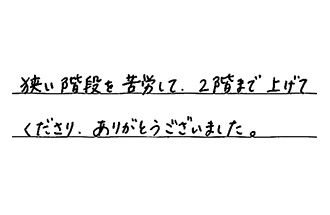 狭い階段を苦労して、2階まで上げて
くださり、ありがとうございました。